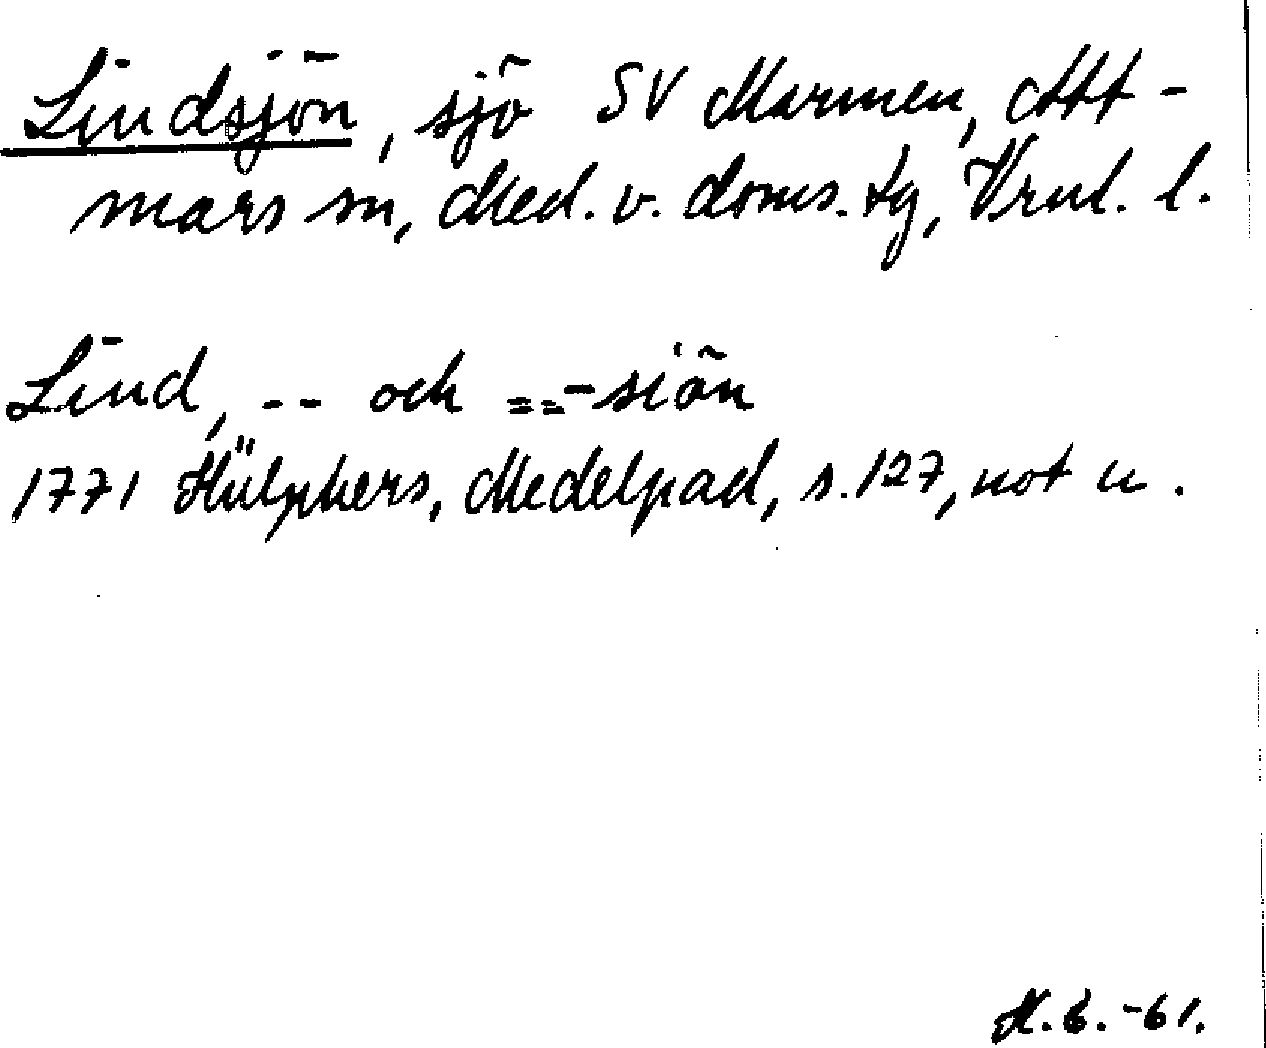 Lindsjön, sjö SV Marmen, Att-
mars sn, Med. v. doms. tg, Vrnl. l.
Lind, -- och ==-siön
1771 Hülphers, Medelpad, s. 127, not u.